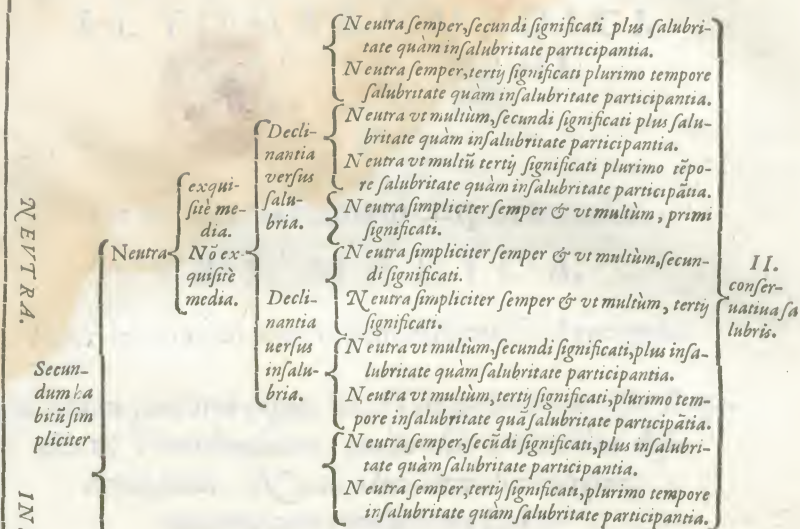 NEVTRA.
IN
Secun-
dum ha
bitũ sim
pliciter
Neutra
exqui-
sitè me-
dia.
Nõ ex-
quisitè
media.
Decli-
nantia
versus
salu-
bria.
Decli-
nantia
uersus
insalu-
bria.
Neutra semper, secundi significati plus salubri-
tate quàm insalubritate participantia.
Neutra semper, tertij significati plurimo tempore
salubritate quàm insalubritate participantia.
Neutra vt multùm, secundi significati plus salu-
britate quàm insalubritate participantia.
Neutra vt multũ tertij significati plurimo tẽpo-
re salubritate quàm insalubritate participãtia.
Neutra simpliciter semper & vt multùm, primi
significati.
Neutra simpliciter semper & vt multùm, secun-
di significati.
Neutra simpliciter semper & vt multùm, tertij
significati.
Neutra vt multùm, secundi significati, plus insa-
lubritate quàm salubritate participantia.
Neutra vt multùm, tertij significati, plurimo tem-
pore insalubritate quã salubritate participãtia.
Neutra semper, secũdi significati, plus insalubri-
tate quàm salubritate participantia.
Neutra semper, tertij significati, plurimo tempore
insalubritate quàm salubritate participantia.
II.
conser-
uatiua sa
lubris.